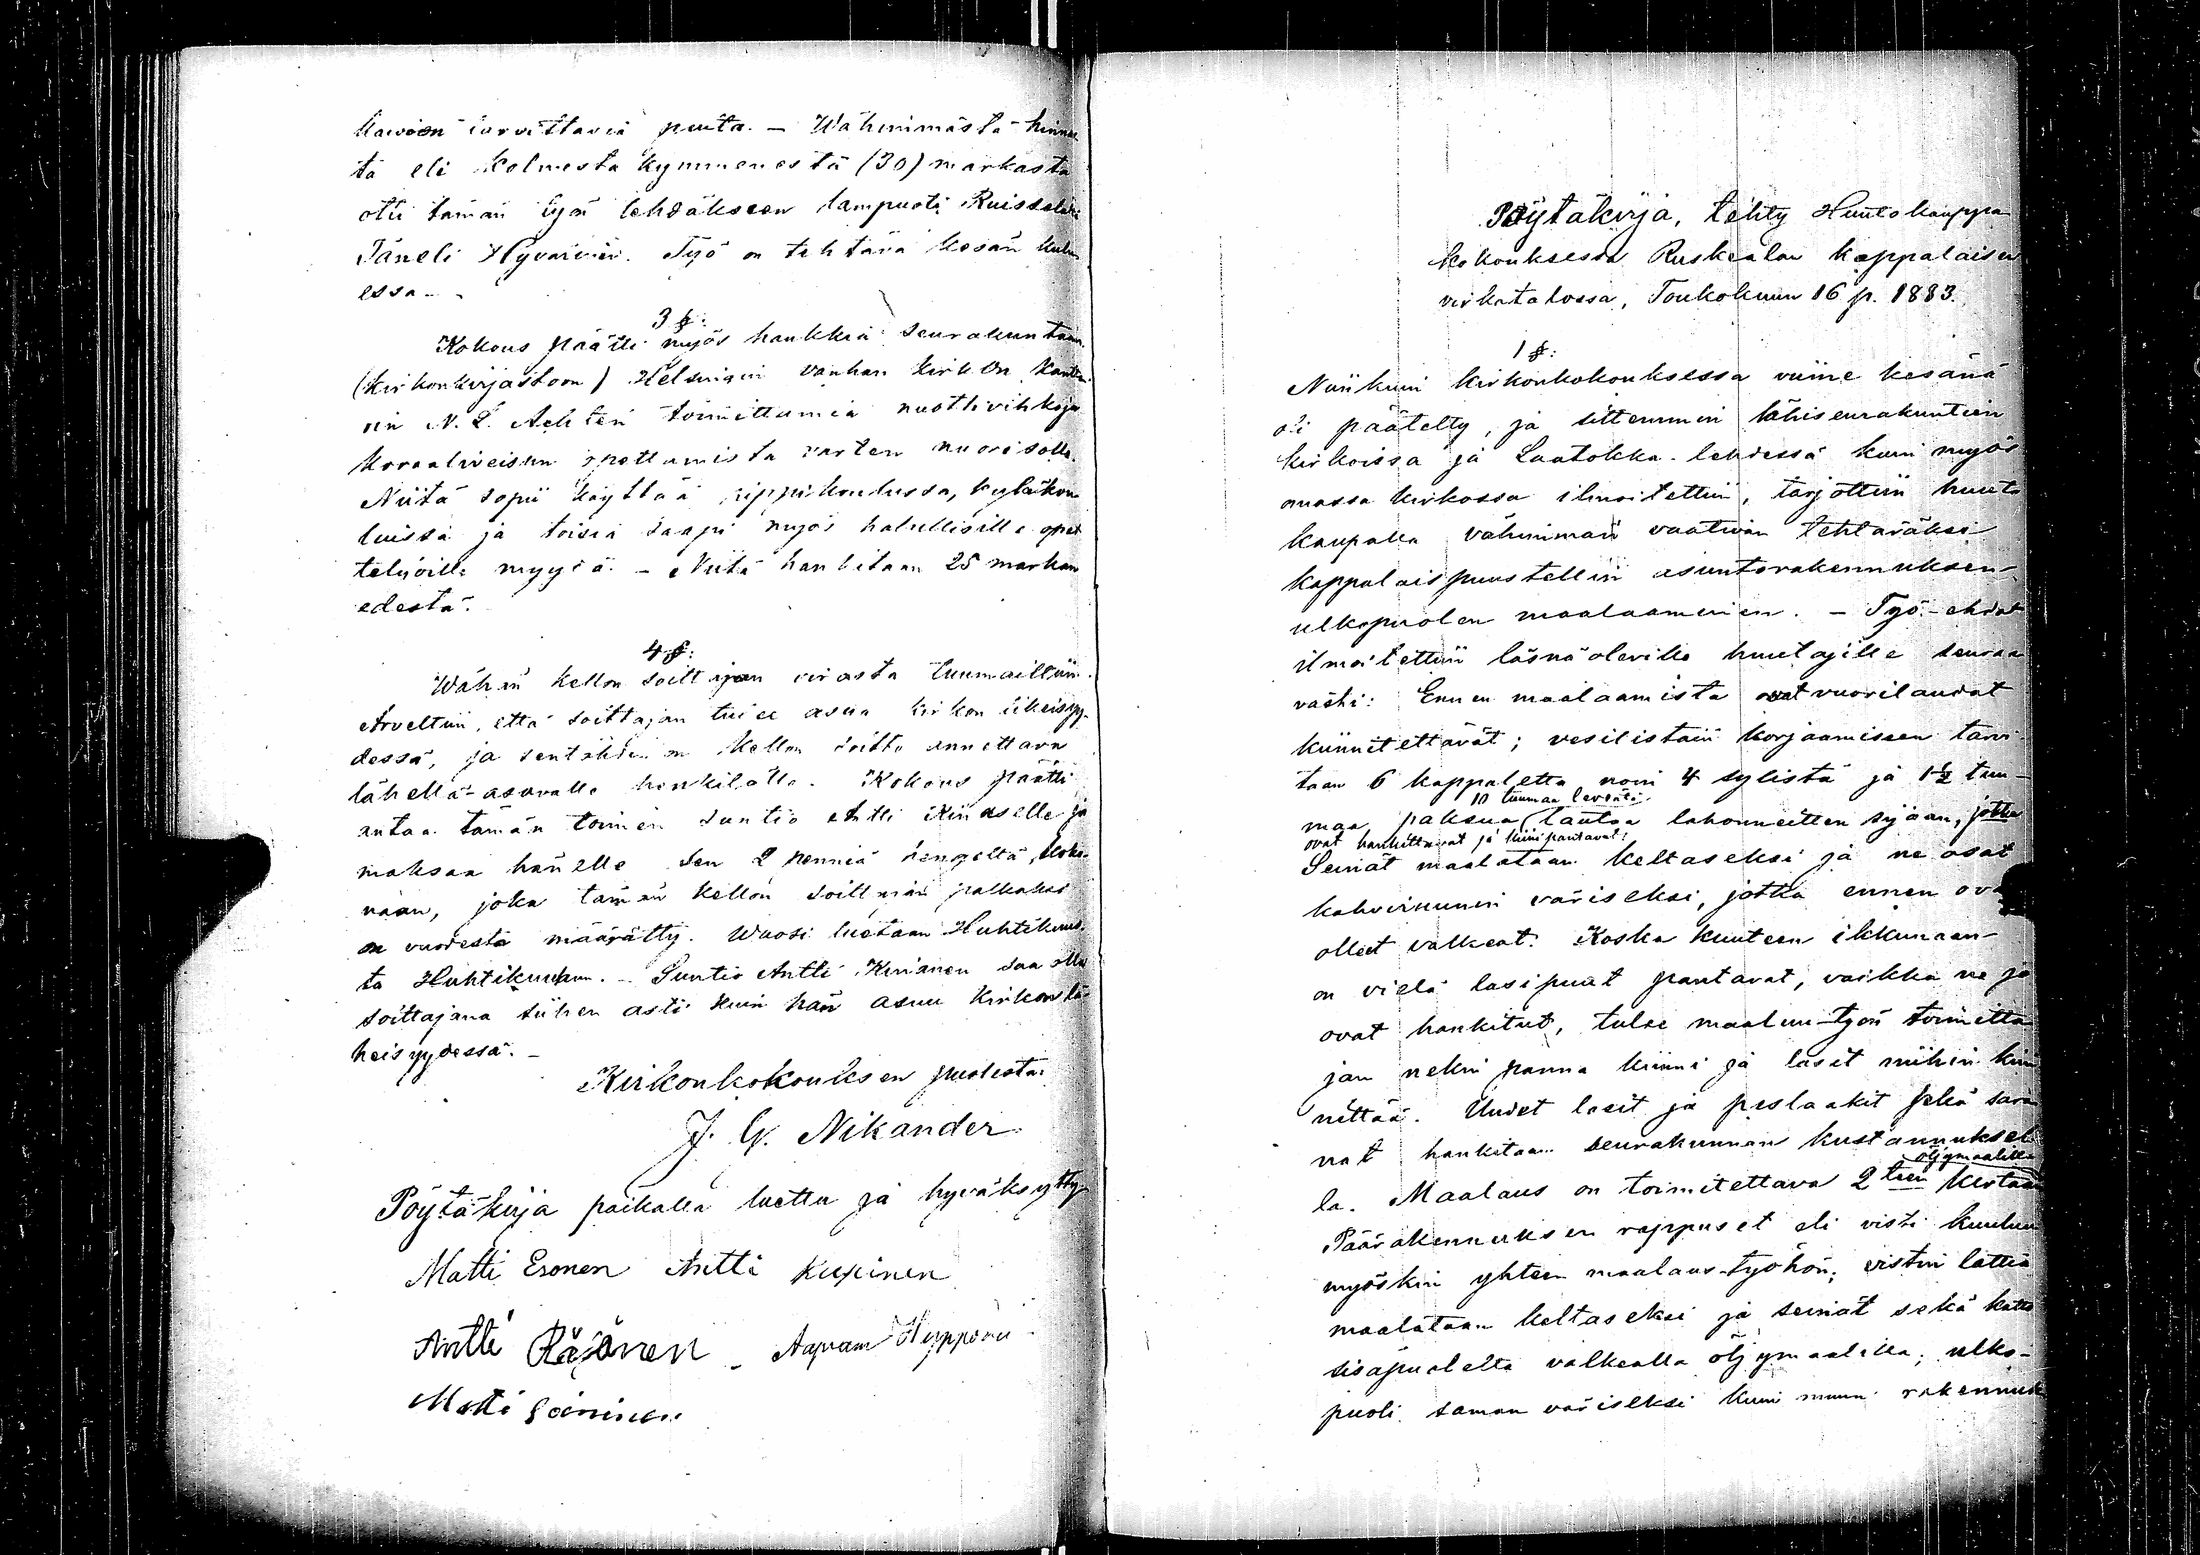 tarvittavia puita. – Wähimmästä hinnas
ta eli kolmesta kymmenestä (30) markasta
otti tämän työn tehdäkseen lampuoti
Täneli Hyvärinen. Työ on tehtävä kesän kulu
essa. –
3 §:
Kokous päätti myös hankkia seurakuntaan
(kirkonkirjastoon) Helsingin vanhan kirkon kantto
rin N. L. Achtén toimittamia nuottivihkoja
koraaliveisun opettamista varten nuorisolle.
Niitä sopii käyttää rippikoulussa, kyläkou
luissa ja toisia saapi myös halullisille opet
telijoille myydä. – Niitä hankitaan 25 markan
edestä.
4 §:
Wähän kellon soittajan virasta tuumailtiin.
Arveltiin, että soittajan tulee asua kirkon likeisyy-
dessä, ja sentähden on kellon soitto annettava
lähellä-asuvalle henkilölle. Kokous päätti
antaa tämän toimen suntio Antti Kinaselle ja
maksaa hänelle sen 2 penniä hengeltä,
naan, joka tämän kellon soittajan palkaksi
on vuodesta määrätty. Wuosi luetaan Huhtikuus
ta Huhtikuuhun. – Suntio Antti Kinanen saa olla
soittajana siihen asti kuin hän asuu kirkon lä
heisyydessä. –
Kirkonkokouksen puolesta:
J. G. Nikander
Pöytäkirja paikalla luettu ja hyväksytty
Matti Esonen Antti Kupinen
Antti Räsänen – Aapram Hupponen
Matti
Pöytäkirja, tehty Huutokauppa
kokouksessa Ruskealan kappalaisen
virkatalossa, Toukokuun 16 p. 1883.
1 §:
Niinkuin kirkonkokouksessa viime kesänä
oli päätetty, ja sittemmin lähiseurakuntien
kirkoissa ja Laatokka-lehdessä kuin myös
omassa kirkossa ilmoitettiin, tarjottiin huuto
kaupalla vähimmän vaativan tehtäväksi
kappalaispuustellin asuntorakennuksen
ulkopuolen maalaaminen. – Työ-ehdot
ilmoitettiin läsnäoleville huutajille seuraa
vasti: Ennen maalaamista ovat vuorilaudat
kiinnitettävät; vesilistain korjaamiseen tarvi
taan 6 kappaletta noin 4 sylistä ja 1½ tuu-
10 tuumaa leveätä
maa paksua lautaa lahonneitten sijaan, jotka
ovat hankittavat ja kiinipantavat!
Seinät maalataan keltaseksi ja ne osat
kahvinruunin väriseksi, jotka ennen ova
olleet valkeat. Koska kuuteen ikkunaan
on vielä lasipuut pantavat, vaikka ne jo
ovat hankitut, tulee maaluu-työn toimitta
jan nekin panna kiinni ja lasit niihin kiin
nittää. Uudet lasit ja peslaakit sekä sara
nat hankitaan seurakunnan kustannuksel
öljymaalilla
la. Maalaus on toimitettava 2 teen kertaan
Päärakennuksen rappuset eli visti kuuluu
myöskin yhteen maalaus-työhön; vistin lattia
maalataan keltaseksi ja seinät sekä katto
sisäpuolelta valkealla öljymaalilla; ulko-
puoli saman väriseksi kuin muu rakennus